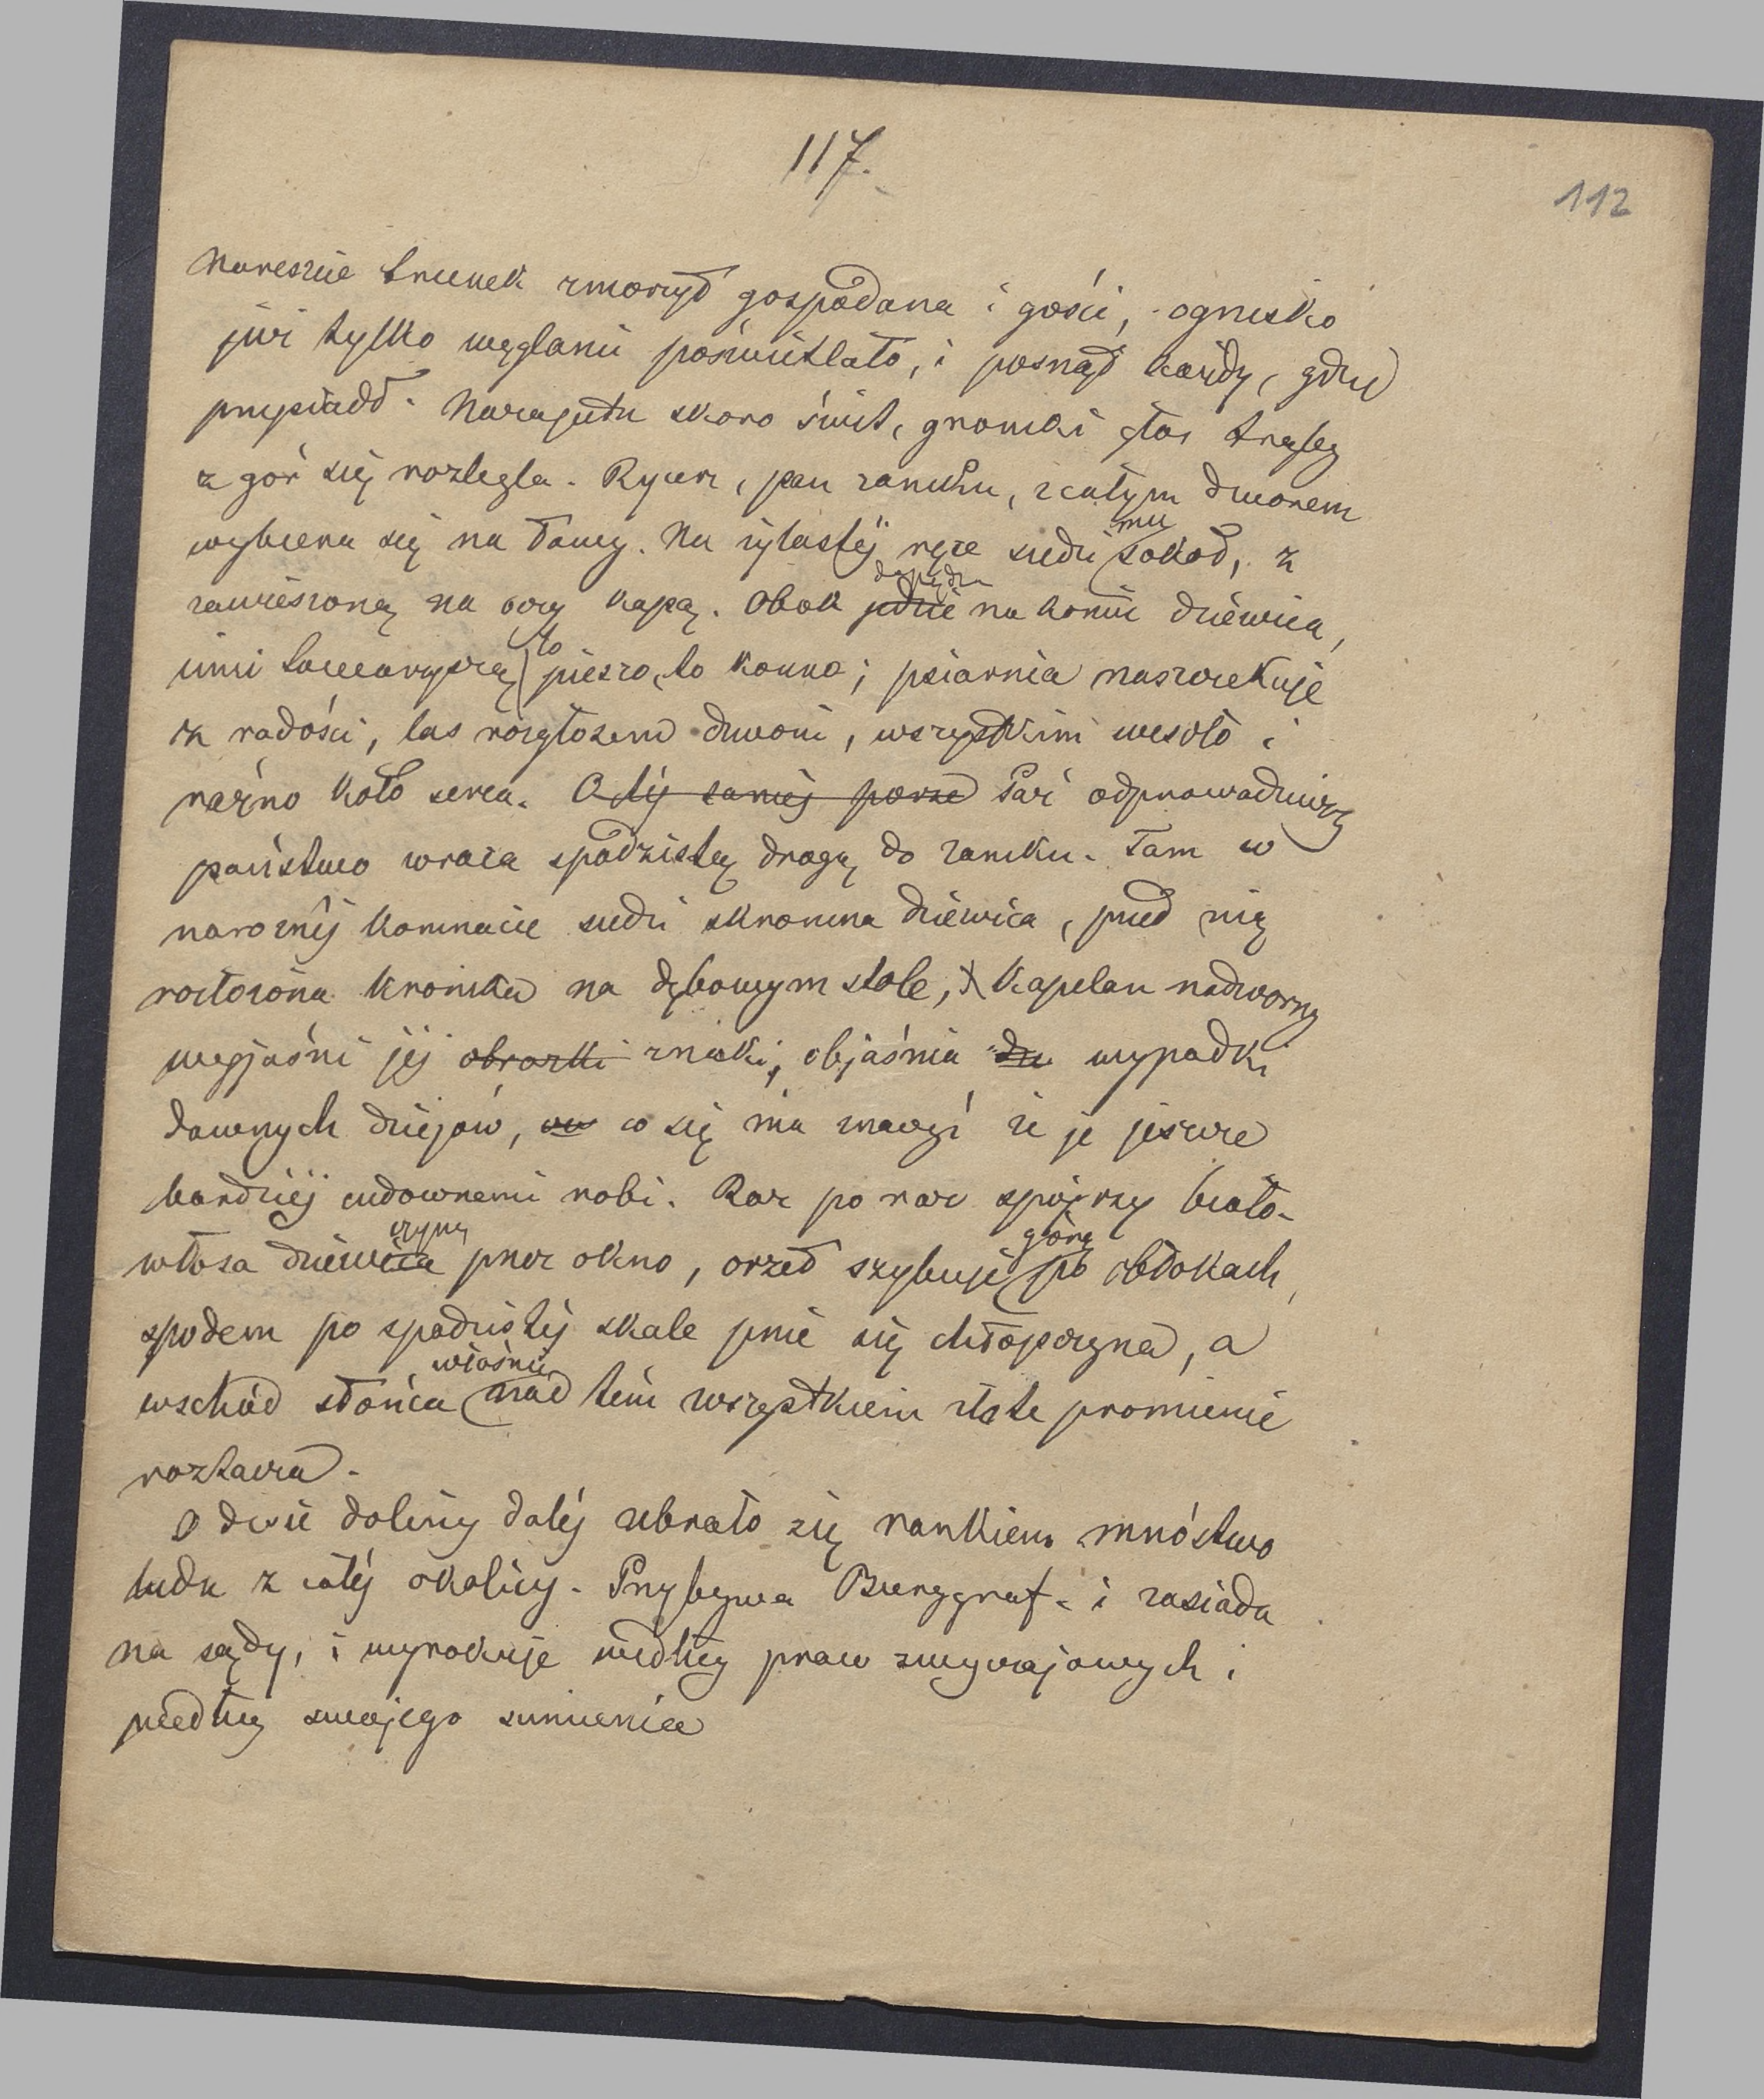 117.
112
Nareszcie trunek zmorzył gospodarza i gości, ognisko
już tylko węglami poświetlało, i posnął każdy, gdzie
przysiadł. Nazajutrz skoro świt, gromki głos trąby
z gór się rozlega. Rycerz, pan zamku, z całym dworem
wybiera się na łowy. Na żylastéj ręce siedzi mu sokół, z
zawieszoną na oczy kapą. Obok jedzie dopędza na koniu dziéwica,
inni towarzyszą to pieszo, to konno; psiarnia naszczekuje
z radości, las rozgłosem dzwoni, wszystkim wesoło i
raźno koło serca. O téj saméj porze Paź odprowadziwszy
państwo wraca spadzistą drogą do zamku. Tam w
narożnéj komnacie siedzi skromna dziéwica, przed nią
roztożona kronika na dębowym stole, Kapelan nadworny
wyjaśni jéj obrazki znaki, objaśnia wypadki
dawnych dziejów, co się ma znaczyć że je jeszcze
bardziéj cudownemi robi. Raz po raz spójrzy biało-
włosa dziéwica czyna przez okno, orzeł szybuje górą po obłokach,
spodem po spadzistéj skale pnie się chłopczyna, a
wschód słońca właśnie nad tém wszystkiem złote promienie
roztacza.
O dwie doliny daléj zebrało się rankiem mnóstwo
ludu z całéj okolicy. Przybywa Burggraf i zasiada
na sądy, i wyrokuje według praw zwyczajowych i
według swojego sumienia